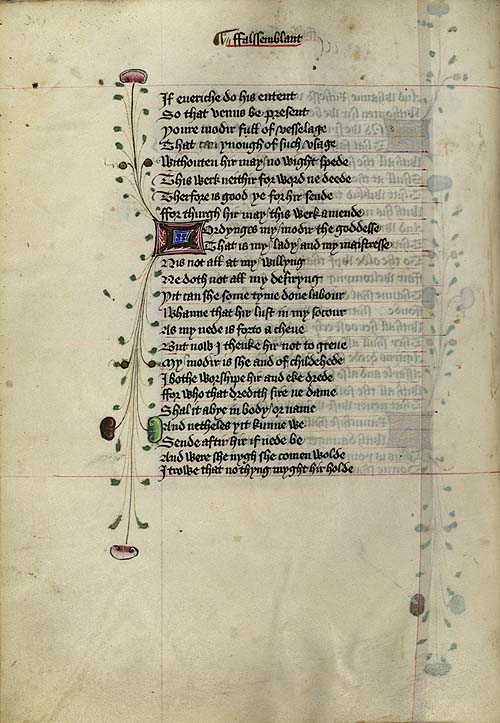 ffalssemblant
If eueriche do his entent
So that venus be present
Youre modir full of vesselage
That can ynough of such vsage
Withouten hir may no wight spede
This werk neithir for word ne deede
Therfore is good ye for hir sende
ffor thurgh hir may this werk amende
Lordynges my modir the goddesse
That is my lady and my maistresse
Nis not all at my willyng
Ne doth not all my desiryng
Yit can she some tyme done labour
Whanne that hir lust in my socour
As my nede is forto acheue
But now I thenke hir not to greue
My modir is she and of childehede
I bothe worshipe hir and eke drede
ffor who that dredith sire ne dame
Shal it abye in body or name
And netheles yit kunne we
Sende aftir hir if nede be
And were she nygh she comen wolde
I trowe that nothyng myght hir holde